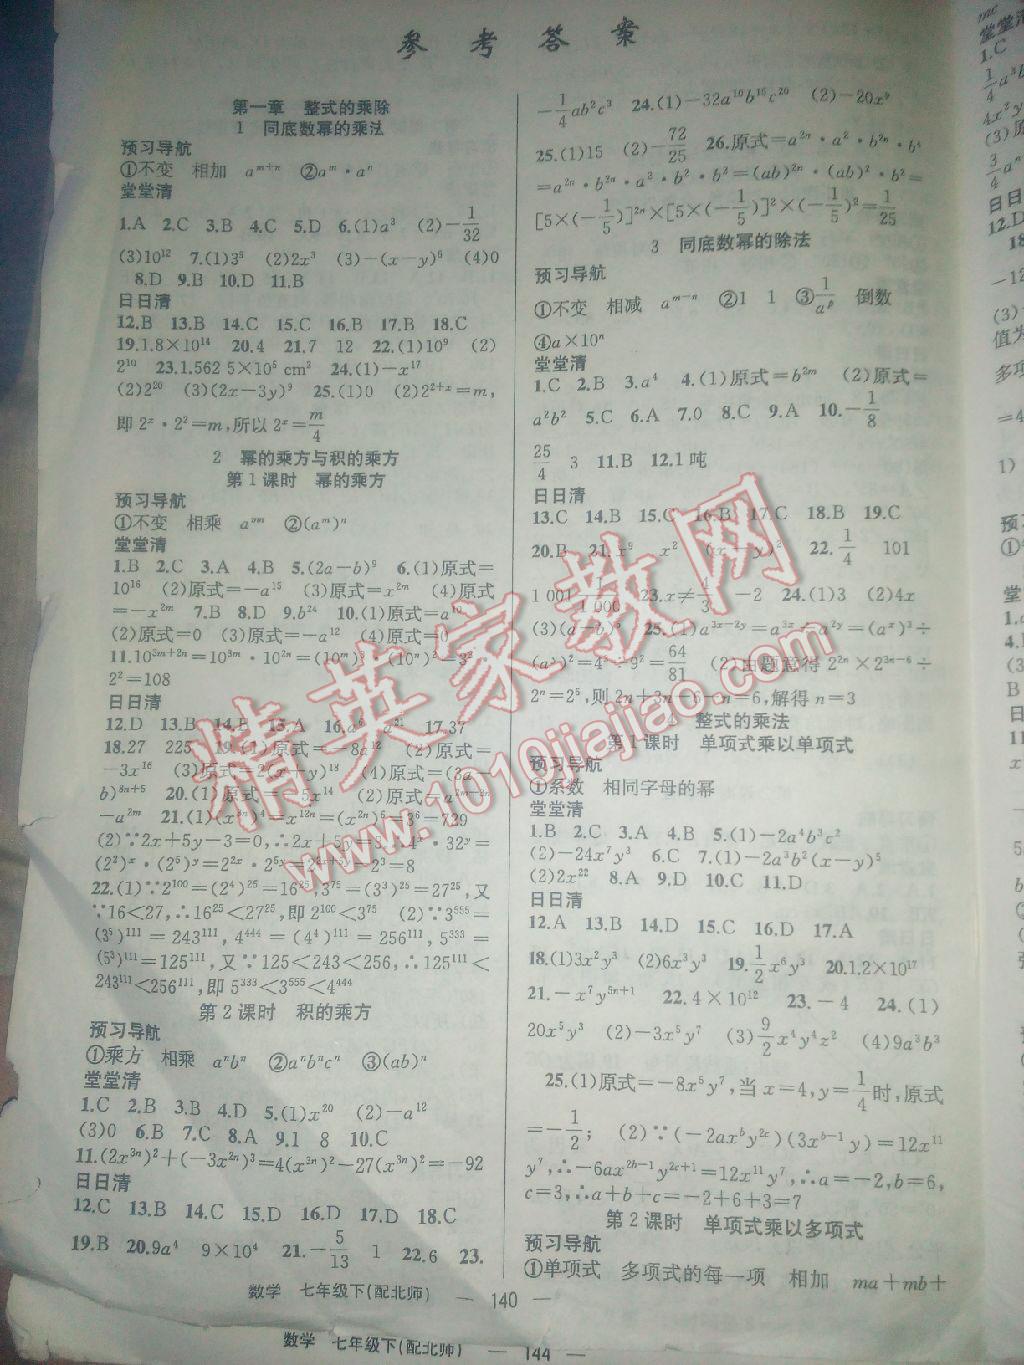 参考答案
第一章 整式的乘除
1 同底数幂的乘法
预习导航
①不变 相加 a^{m+n} ②a^m·a^n
堂堂清
1.A 2.C 3.B 4.C 5.D 6.(1)a³ (2)-1/32
(3)10¹² 7.(1)3⁵ (2)2x³ (3)-(x-y)⁶ (4)0
8.D 9.B 10.D 11.B
日日清
12.B 13.B 14.C 15.C 16.B 17.B 18.C
19.1.8×10¹⁴ 20.4 21.7 12 22.(1)10⁹ (2)
2¹⁰ 23.1.562 5×10⁵ cm² 24.(1)-x¹⁷
(2)2²⁰ (3)(2x-3y)⁹ 25.(1)0 (2)2^{2+x}=m,
即2^x·2²=m,所以2^x=m/4
2 幂的乘方与积的乘方
第1课时 幂的乘方
预习导航
①不变 相乘 a^{nm} ②(a^m)^n
堂堂清
1.B 2.C 3.A 4.B 5.(2a-b)⁹ 6.(1)原式=
10¹⁶ (2)原式=-a¹⁵ (3)原式=x^{2m} (4)原式
=-x^{2m} 7.B 8.D 9.b²⁴ 10.(1)原式=a¹⁹
(2)原式=0 (3)原式=-a¹² (4)原式=0
11.10^{3m+2n}=10^{3m}·10^{2n}=(10^m)³·(10^n)²=3³·
2²=108
日日清
12.D 13.B 14.B 15.A 16.a⁹ a²¹ 17.37
18.27 225 19.(1)原式=-8a¹² (2)原式=
-3x¹⁶ (3)原式=2(x+y)¹⁸ (4)原式=(3a-
b)^{8n+5} 20.(1)原式=-5x¹⁴ (2)原式=
-a^{2m} 21.(1)(x^{3n})⁴=x^{12n}=(x^{2n})⁶=3⁶=729
(2)∵2x+5y-3=0,∴2x+5y=3,∴4^x·32^y=
(2²)^x·(2⁵)^y=2^{2x}·2^{5y}=2^{2x+5y}=2³=8
22.(1)∵2¹⁰⁰=(2⁴)²⁵=16²⁵,3⁷⁵=(3³)²⁵=27²⁵,又
∵16<27,∴16²⁵<27²⁵,即2¹⁰⁰<3⁷⁵ (2)∵3⁵⁵⁵=
(3⁵)¹¹¹=243¹¹¹,4⁴⁴⁴=(4⁴)¹¹¹=256¹¹¹,5³³³=
(5³)¹¹¹=125¹¹¹,又∵125<243<256,∴125¹¹¹<
243¹¹¹<256¹¹¹,即5³³³<3⁵⁵⁵<4⁴⁴⁴
第2课时 积的乘方
预习导航
①乘方 相乘 a^n b^n ②a^n b^n c^n ③(ab)^n
堂堂清
1.C 2.B 3.B 4.D 5.(1)x²⁰ (2)-a¹²
(3)0 6.B 7.C 8.A 9.1 8 10.C
11.(2x^{3n})²+(-3x^{2n})³=4(x^{3n})²-27(x^{3n})²=-92
日日清
12.C 13.B 14.C 15.D 16.D 17.D 18.C
19.B 20.9a⁴ 9×10⁴ 21.-5/13 1 22.6 23.
-1/4ab²c³ 24.(1)-32a¹⁰b¹⁵c²⁰ (2)-20x⁹
25.(1)15 (2)-72/25 26.原式=a^{2n}·a²·b^{2n}·b⁴
=a^{2n}·b^{2n}·a²·b²·b²=(ab)^{2n}·(ab)²·b²=
[5×(-1/5)]^{2n}×[5×(-1/5)]²×(-1/5)²=1/25
3 同底数幂的除法
预习导航
①不变 相减 a^{m-n} ②1 1 ③1/a^p 倒数
④a×10^n
堂堂清
1.C 2.B 3.a⁴ 4.(1)原式=b^{2m} (2)原式=
a²b² 5.C 6.A 7.0 8.C 9.A 10.-1/8
25/4 3 11.B 12.1吨
日日清
13.C 14.B 15.C 16.B 17.C 18.B 19.C
20.B 21.x⁹ x² (x-y)² 22.1/4 101
1 001 1/1 000 23.x≠4/3 -2 24.(1)3 (2)4x
(3)(a-b)⁶ 25.(1)a^{3x-2y}=a^{3x}÷a^{2y}=(a^x)³÷
(a^y)²=4³÷9²=64/81 (2)由题意得2^{2n}×2^{3n-6}÷
2^n=2⁵,则2n+3n-6-n=6,解得n=3
整式的乘法
第1课时 单项式乘以单项式
预习导航
①系数 相同字母的幂
堂堂清
1.B 2.C 3.A 4.B 5.(1)-2a⁴b³c²
(2)-24x⁷y³ 6.C 7.(1)-2a³b²(x-y)⁵
(2)2x²² 8.A 9.D 10.C 11.D
日日清
12.A 13.B 14.D 15.C 16.D 17.A
18.(1)3x²y³ (2)6x³y³ 19.1/2x⁶y³ 20.1.2×10¹⁷
21.-x⁷y^{5n+1} 22.4×10¹² 23.-4 24.(1)
20x⁵y³ (2)-3x⁵y⁷ (3)9/2x⁴y⁴z² (4)9a³b³
25.(1)原式=-8x⁵y⁷,当x=4,y=1/4时,原式
=-1/2; (2)∵(-2ax^b y^{2c})(3x^{b-1}y)=12x¹¹
y⁷,∴-6ax^{2b-1}y^{2c+1}=12x¹¹y⁷,∴a=-2,b=6,
c=3,∴a+b+c=-2+6+3=7
第2课时 单项式乘以多项式
预习导航
①单项式 多项式的每一项 相加 ma+mb+
数学 七年级下(配北师) — 140 —
数学 七年级下(配北师) — 144 —
精英家教网
www.1010jiajiao.com